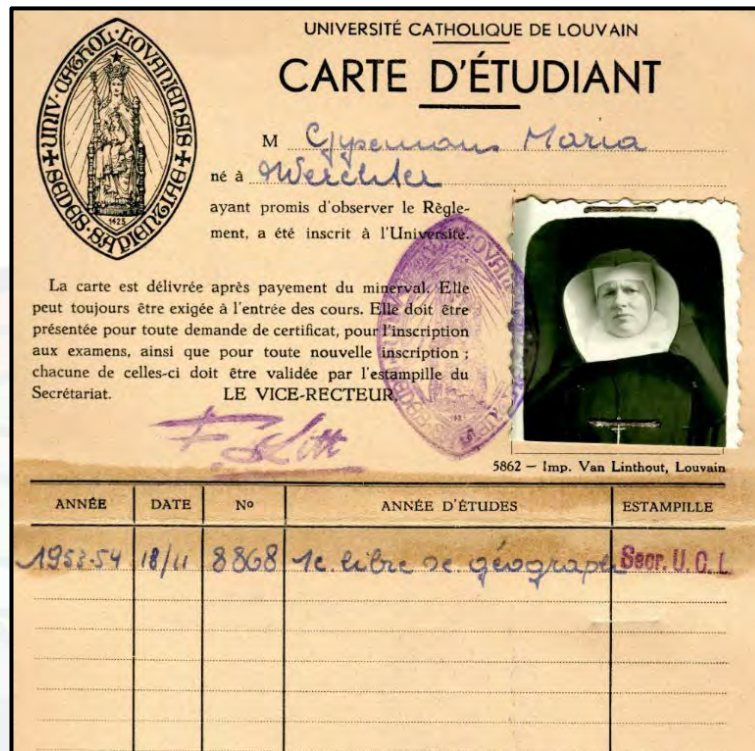 UNIVERSITÉ CATHOLIQUE DE LOUVAIN
CARTE D'ÉTUDIANT
UNIV·CATHOL·LOVANIENSIS
SEDES·SAPIENTIAE
1425
M Gysemans Maria
né à Werchter
ayant promis d'observer le Règle-
ment, a été inscrit à l'Université.
La carte est délivrée après payement du minerval. Elle
peut toujours être exigée à l'entrée des cours. Elle doit être
présentée pour toute demande de certificat, pour l'inscription
aux examens, ainsi que pour toute nouvelle inscription ;
chacune de celles-ci doit être validée par l'estampille du
Secrétariat. LE VICE-RECTEUR,
5862 — Imp. Van Linthout, Louvain
ANNÉE DATE Nº ANNÉE D'ÉTUDES ESTAMPILLE
1953-54 18/11 8868 1e libre sc. géograph Secr. U. C. L